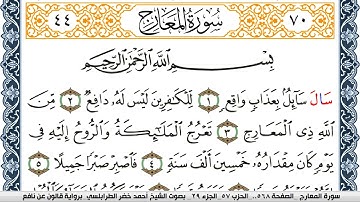 ٧٠ سُورَةُ المَعَارِجِ ٤٤
بِسْمِ اِ۬للَّهِ اِ۬لرَّحْمَٰنِ اِ۬لرَّحِيمِ
سَالَ سَآئِلُۢ بِعَذَابٖ وَاقِعٖ ١ لِّلْكَٰفِرِينَ لَيْسَ لَهُۥ دَافِعٞ ٢ مِّنَ
اَ۬للَّهِ ذِے اِ۬لْمَعَارِجِ ٣ تَعْرُجُ اُ۬لْمَلَٰٓئِكَةُ وَالرُّوحُ إِلَيْهِ فِے
يَوْمٖ كَانَ مِقْدَارُهُۥ خَمْسِينَ أَلْفَ سَنَةٖ ٤ فَاصْبِرْ صَبْراٗ جَمِيلاً ٥
سورة المعارج .. الصفحة ٥٦٨.. الحزب ٥٧.. الجزء ٢٩.. بصوت الشيخ أحمد خضر الطرابلسي.. برواية قالون عن نافع